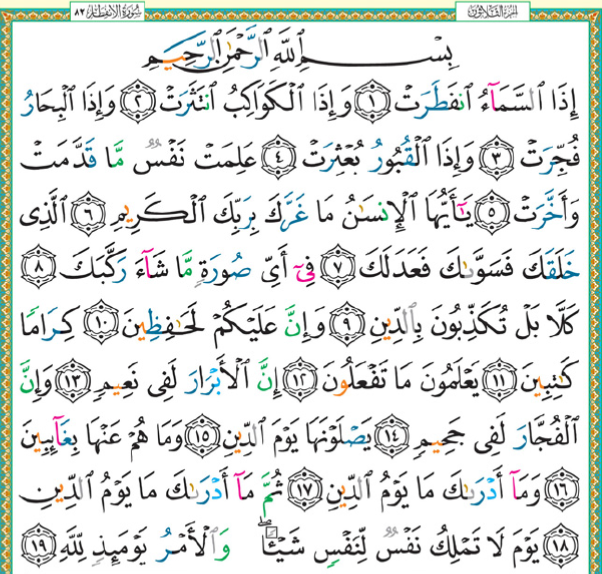 سُورَةُ الانفِطَار ٨٢
الجُزْءُ الثَّلَاثُونَ
بِسْمِ ٱللَّهِ ٱلرَّحْمَٰنِ ٱلرَّحِيمِ
إِذَا ٱلسَّمَآءُ ٱنفَطَرَتْ ١ وَإِذَا ٱلْكَوَاكِبُ ٱنتَثَرَتْ ٢ وَإِذَا ٱلْبِحَارُ
فُجِّرَتْ ٣ وَإِذَا ٱلْقُبُورُ بُعْثِرَتْ ٤ عَلِمَتْ نَفْسٌ مَّا قَدَّمَتْ
وَأَخَّرَتْ ٥ يَٰٓأَيُّهَا ٱلْإِنسَٰنُ مَا غَرَّكَ بِرَبِّكَ ٱلْكَرِيمِ ٦ ٱلَّذِى
خَلَقَكَ فَسَوَّىٰكَ فَعَدَلَكَ ٧ فِىٓ أَىِّ صُورَةٍ مَّا شَآءَ رَكَّبَكَ ٨
كَلَّا بَلْ تُكَذِّبُونَ بِٱلدِّينِ ٩ وَإِنَّ عَلَيْكُمْ لَحَٰفِظِينَ ١٠ كِرَامًا
كَٰتِبِينَ ١١ يَعْلَمُونَ مَا تَفْعَلُونَ ١٢ إِنَّ ٱلْأَبْرَارَ لَفِى نَعِيمٍ ١٣ وَإِنَّ
ٱلْفُجَّارَ لَفِى جَحِيمٍ ١٤ يَصْلَوْنَهَا يَوْمَ ٱلدِّينِ ١٥ وَمَا هُمْ عَنْهَا بِغَآئِبِينَ
١٦ وَمَآ أَدْرَىٰكَ مَا يَوْمُ ٱلدِّينِ ١٧ ثُمَّ مَآ أَدْرَىٰكَ مَا يَوْمُ ٱلدِّينِ
١٨ يَوْمَ لَا تَمْلِكُ نَفْسٌ لِّنَفْسٍ شَيْـًٔا ۖ وَٱلْأَمْرُ يَوْمَئِذٍ لِّلَّهِ ١٩